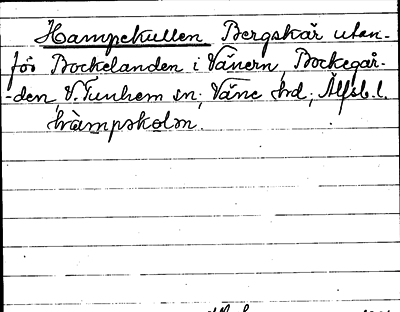 Hampekullen Bergskär utan-
för Bockelanden i Vänern, Bockegår-
-den, V. Tunhem sn; Väne hd; Älfsb. l.
hàmpskolm.